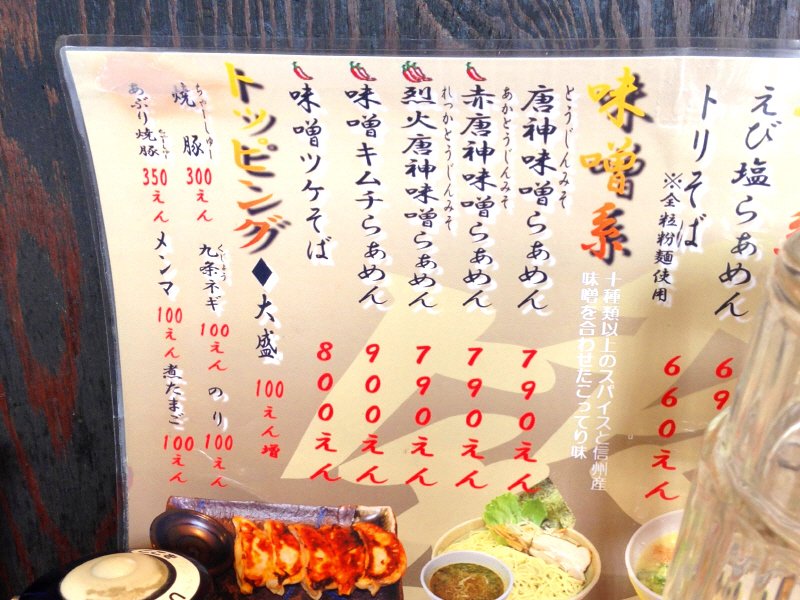 えび塩らぁめん
69
トリそば
※全粒粉麺使用
660えん
味噌系
十種類以上のスパイスと信州産
味噌を合わせたこってり味
とうじんみそ
唐神味噌らぁめん
790えん
あかとうじんみそ
赤唐神味噌らぁめん
790えん
れっかとうじんみそ
烈火唐神味噌らぁめん
790えん
味噌キムチらぁめん
900えん
味噌ツケそば
800えん
トッピング
◆大盛
100えん増
ちゃーしゅー
焼豚
300えん
くじょう
九条ネギ
100えん
のり
100えん
あぶり焼豚
350えん
メンマ
100えん
煮たまご
100えん